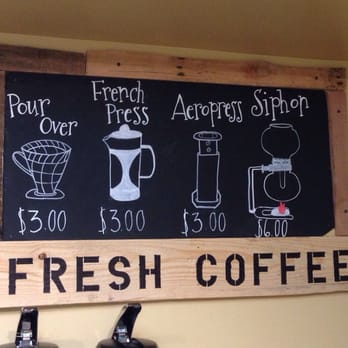 Pour Over
French Press
Aeropress
Siphon
$3.00
$3.00
$3.00
$6.00
FRESH COFFEE